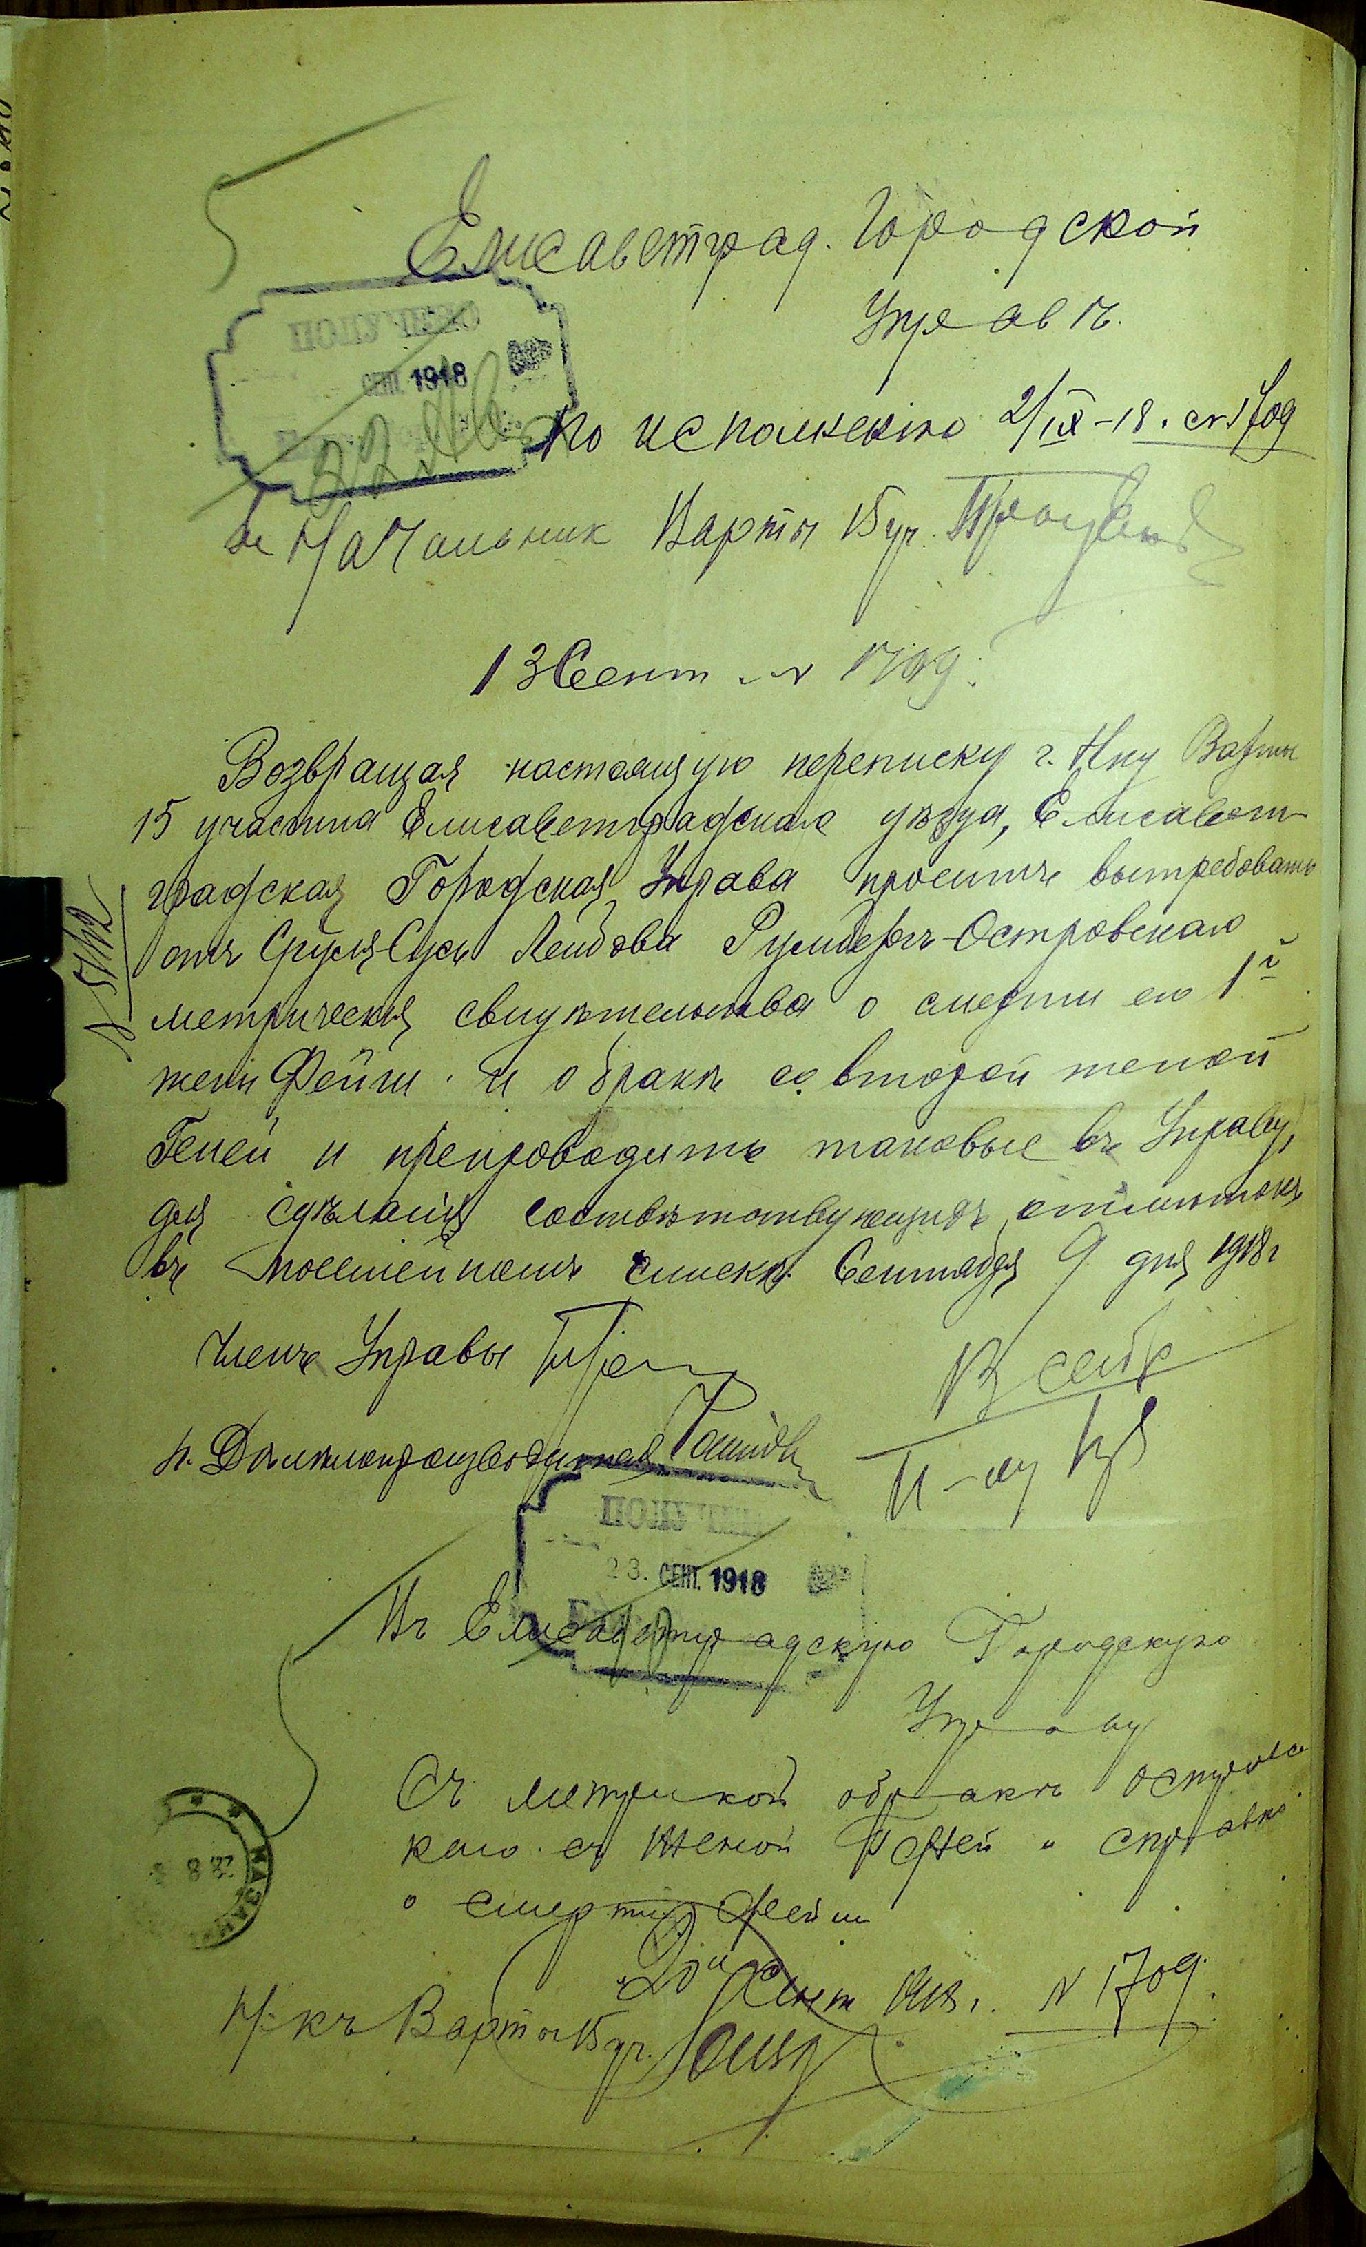 Елисаветград. Городской
Управѣ.
ПОЛУЧЕНО
СЕНТ. 1918
По исполненію 2/IX-18. № 1709
Начальник Варты 15 уч.
13 Сент № 1709.
Возвращая настоящую переписку г. Нку Варты
15 участка Елисаветградскаго уѣзда, Елисавет-
градская Городская Управа проситъ вытребовать
№ 5112
отъ Сруля-Суся Лейбова Островскаго
метрическія свидѣтельства о смерти его 1й
жены Фейги и о бракѣ со второй женой
Геней и препроводить таковые въ Управу,
для сдѣланія соотвѣтствующихъ отмѣтокъ
въ посемейномъ спискѣ. Сентября 9 дня 1918 г
Членъ Управы
п. Дѣлопроизводителя
ПОЛУЧЕНО
23. СЕНТ. 1918
Въ Елисаветградскую Городскую
Управу
Съ метрикой о бракѣ Островс
каго съ женой Геней и справко
о смерти Фейги
20го Сент 1918 г. № 1709.
Н-къ Варты 15 уч.